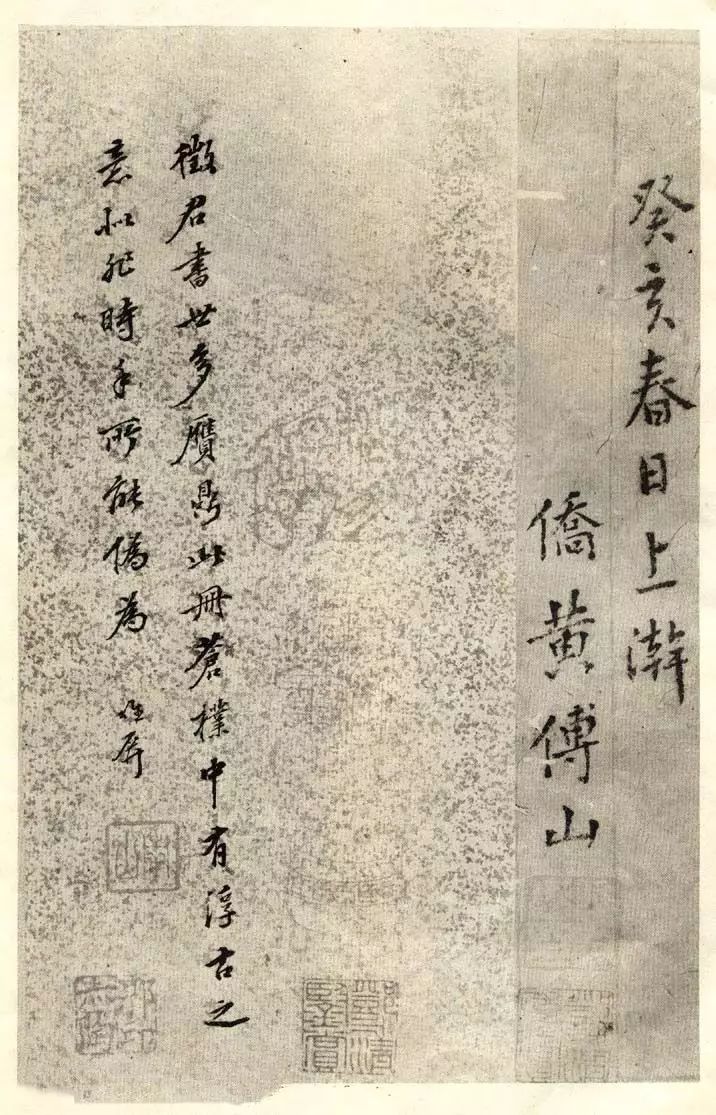 癸亥春日上澣
僑黃傅山
徵君書世多贗鼎此冊蒼樸中有淳古之
意似非時手所能偽為 屏